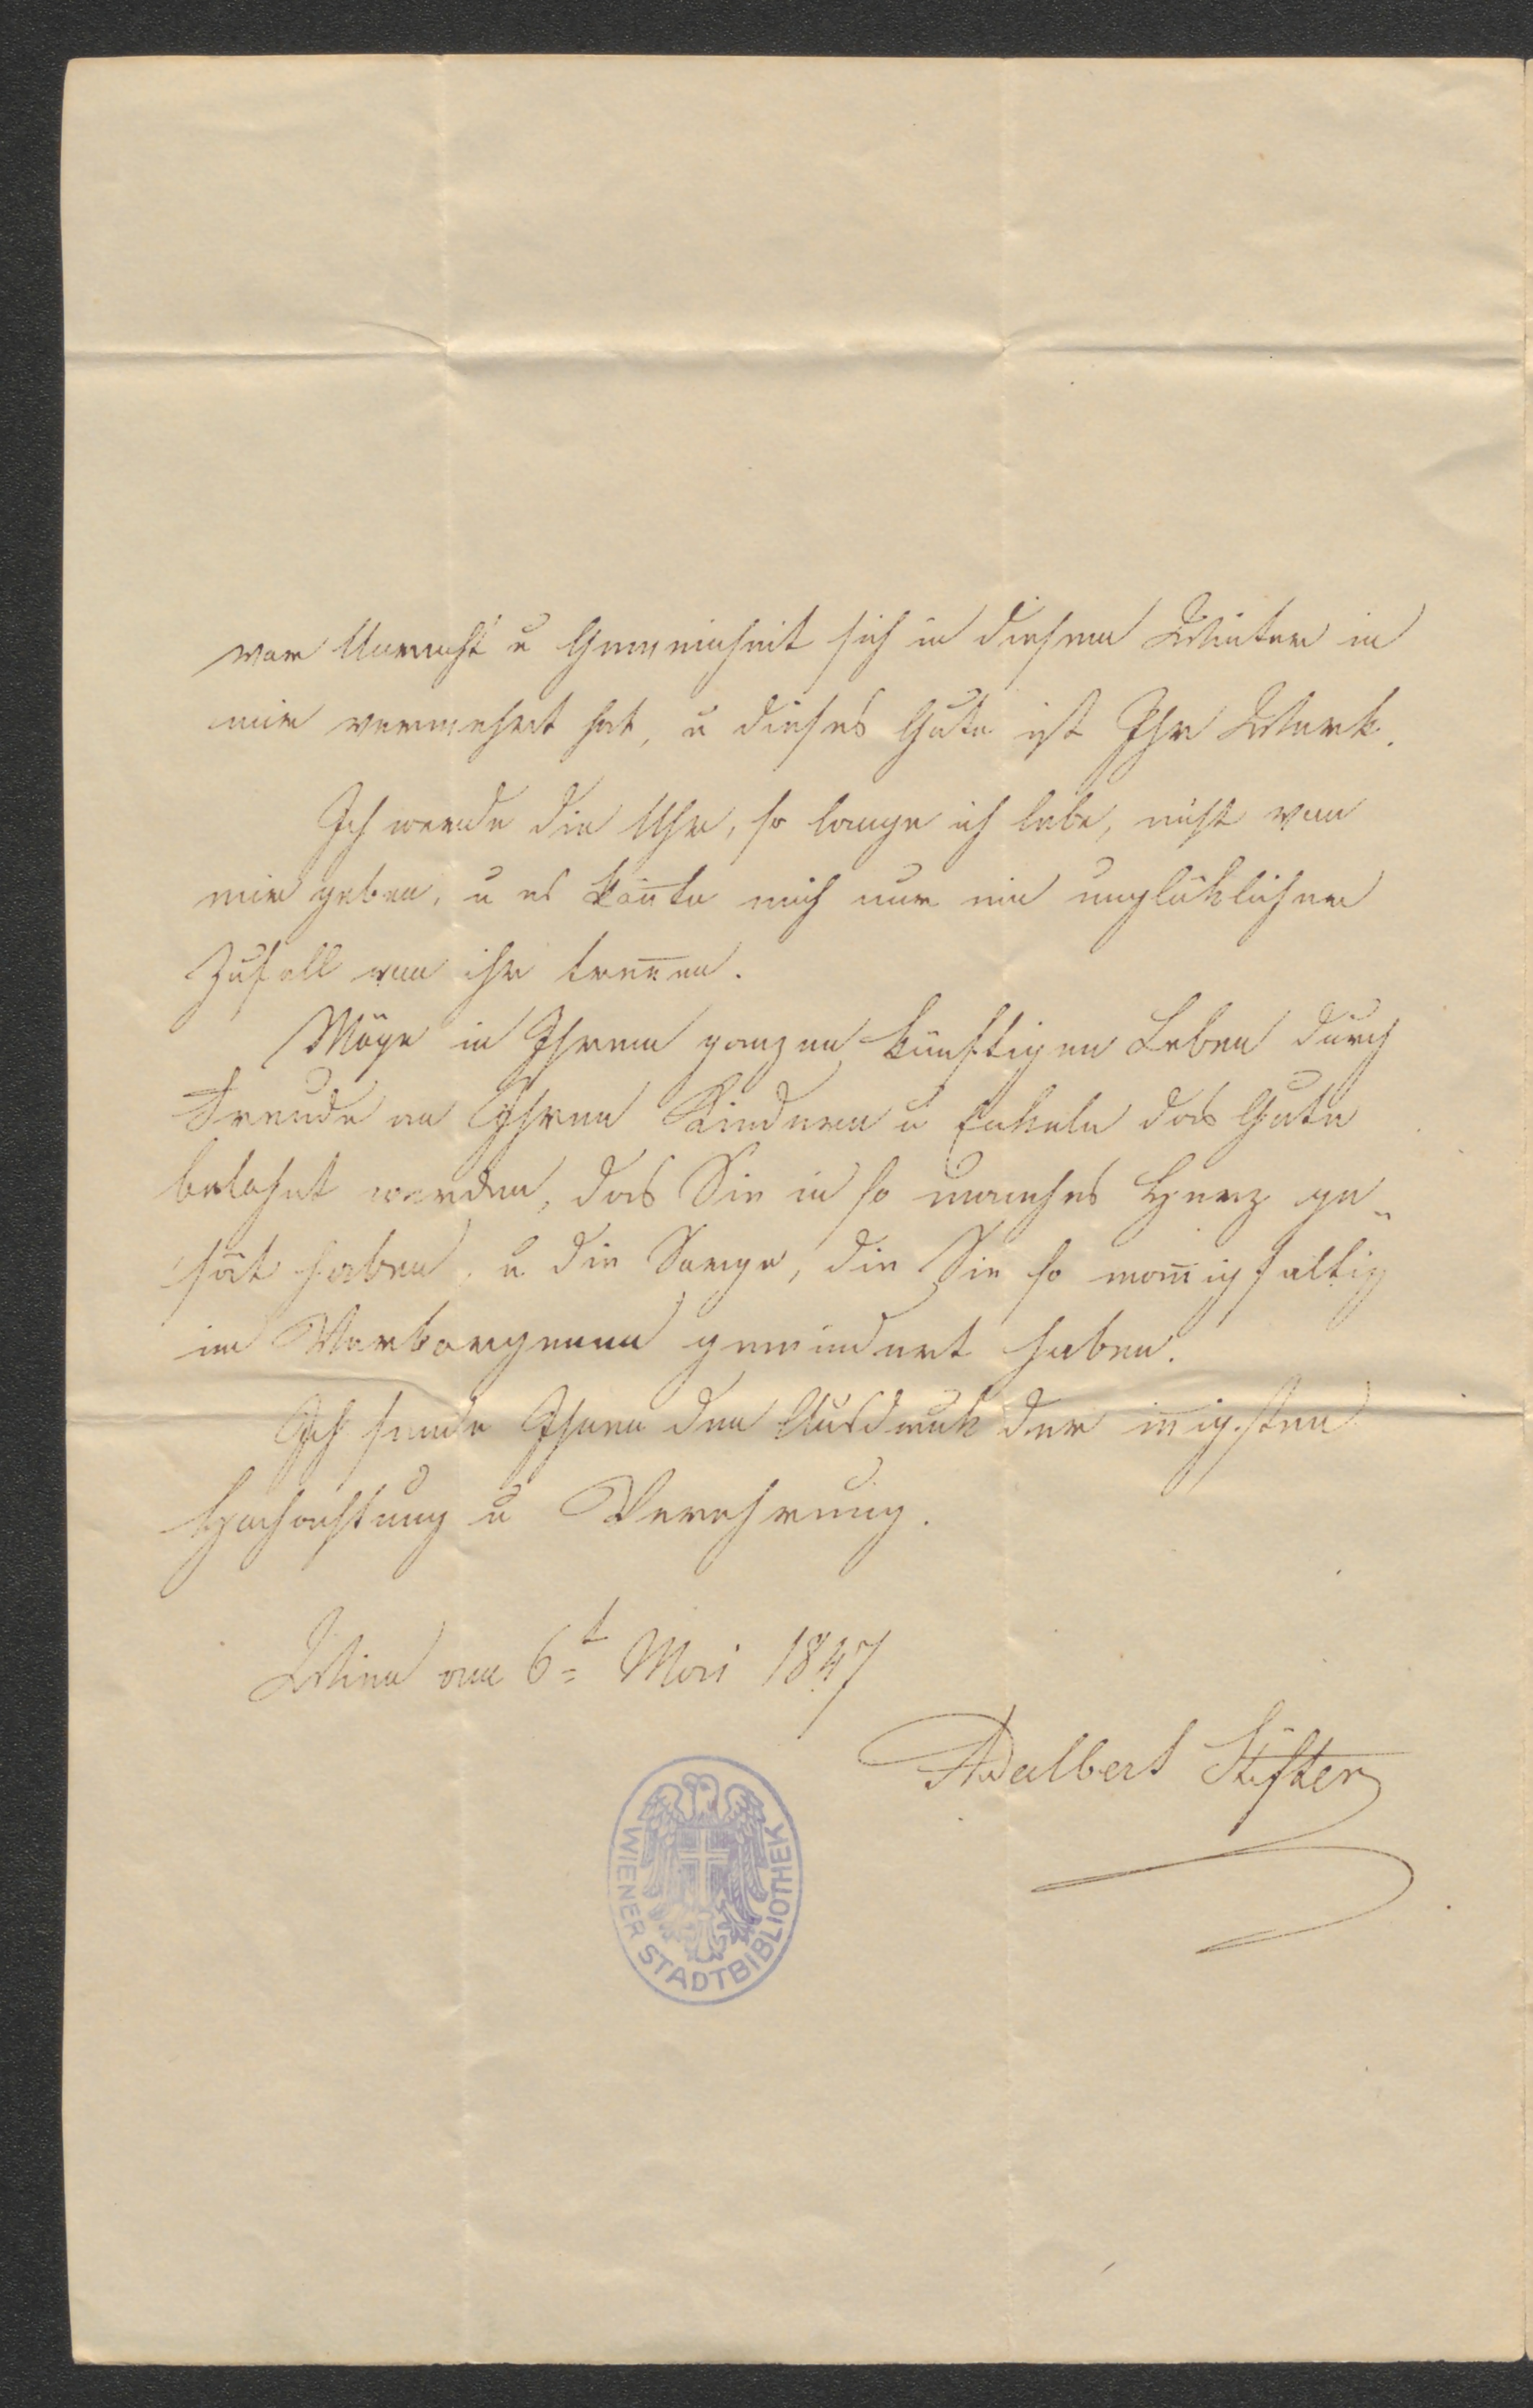 vor Unrecht u Gemeinheit sich in diesem Winter in
mir vermehrt hat, u dieses Gute ist Ihr Werk.
Ich werde die Uhr, so lange ich lebe, nicht von
mir geben, u es kön̅te mich nur ein unglüklicher
Zufall von ihr tren̅en.
Möge in Ihrem ganzen künftigen Leben durch
Freude an Ihren Kindern u Enkeln das Gute
belohnt werden, das Sie in so manches Herz ge„
sät haben, u die Sorge, die Sie so man̅igfaltig
im Verborgenen gemindert haben.
Ich sende Ihnen den Ausdruk der in̅igsten
Hochachtung u Verehrung.
Wien am 6t Mai 1847
Adalbert Stifter
WIENER STADTBIBLIOTHEK